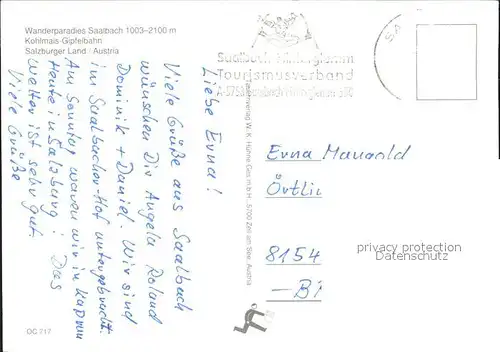 Wanderparadies Saalbach 1003-2100 m
Kohlmais-Gipfelbahn
Salzburger Land / Austria
Saalbach Hinterglemm
Tourismusverband
Liebe Erna!
Viele Grüße aus Saalbach
wünschen Dir Angela Roland
Dominik + Daniel. Wir sind
im Saalbacher-Hof untergebracht.
Am Sonntag waren wir in Kaprun
Heute in Salzburg! Das
Wetter ist sehr gut.
Viele Grüße
W. K. Huhne Ges.m.b.H., 5700 Zell am See, Austria
Erna Mangold
Örtli
8154
-Bi
privacy protection
Datenschutz
OC 717